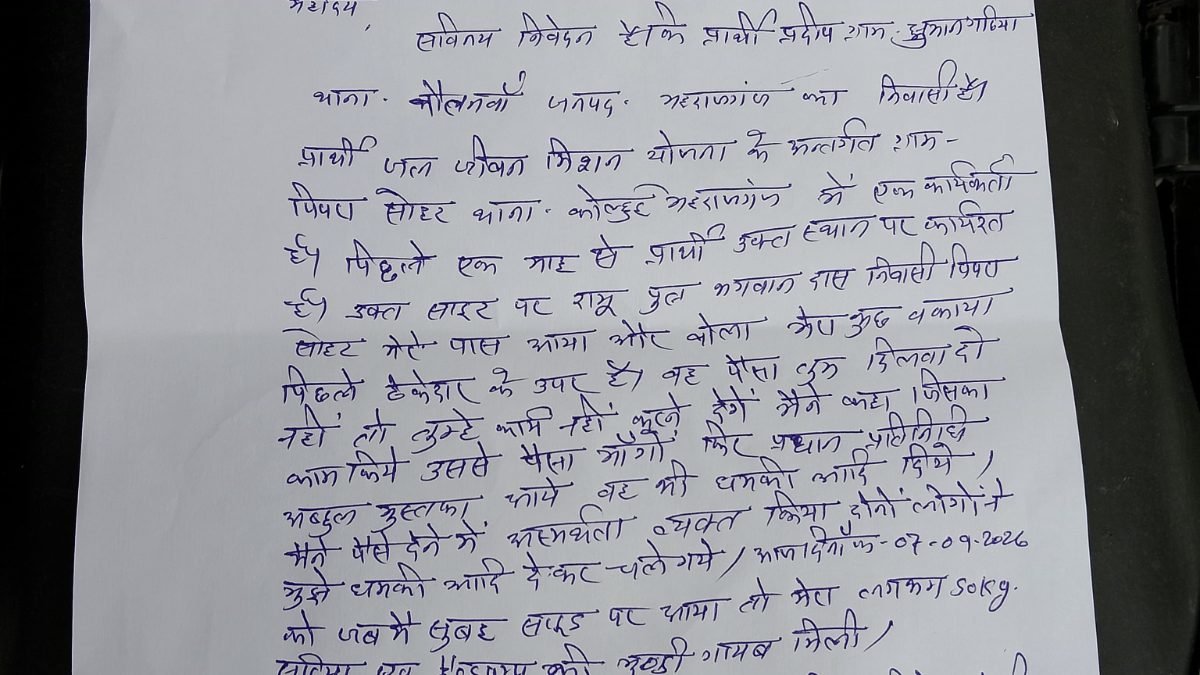 महोदय,
सविनय निवेदन है कि प्रार्थी प्रदीप ग्राम-
थाना- जनपद- महराजगंज का निवासी है।
प्रार्थी जल जीवन मिशन योजना के अन्तर्गत ग्राम-
पिपरा सोहट थाना- कोल्हुई महराजगंज में एक कार्यकर्ता
है। पिछले एक माह से प्रार्थी उक्त स्थान पर कार्यरत
है। उक्त साइट पर रामू पुत्र भगवान दास निवासी पिपरा
सोहट मेरे पास आया और बोला मेरा कुछ वकाया
पिछले ठेकेदार के उपर है। वह पैसा तुम दिलवा दो
नहीं तो तुम्हे काम नहीं करने देगें मैने कहा जिसका
काम किये उससे पैसा माँगो फिर प्रधान प्रतिनिधि
अब्दुल मुस्तफा आये वह भी धमकी आदि दिये/
मैने पैसे देने में असमर्थता व्यक्त किया दोनों लोगों ने
मुझे धमकी आदि दे कर चले गये/ आज दिनाँक-07-09-2026
को जब मै सुबह साइड पर आया तो मेरा लगभग 50kg.
सरिया एवं की गायब मिली/